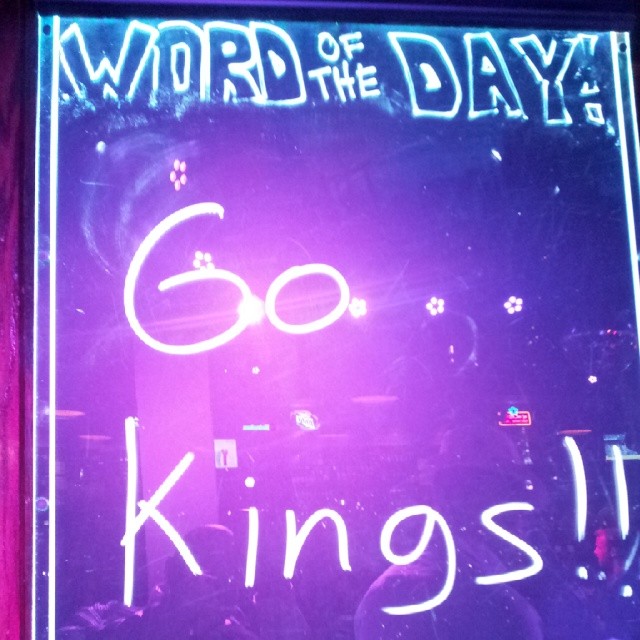 WORD OF THE DAY:
Go
Kings!!